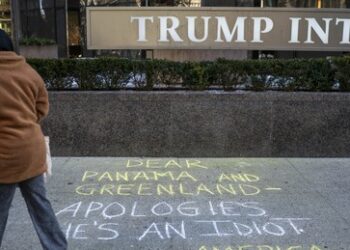 TRUMP INT
DEAR
PANAMA AND
GREENLAND-
APOLOGIES
HE'S AN IDIOT
AMERICA